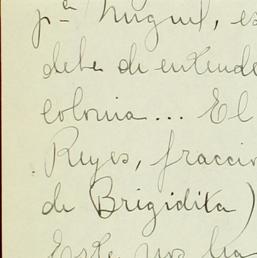 pª Miguel, es
debe de entende
colonia... El
Reyes, fraccio
de Brigidita)
Este nos ha